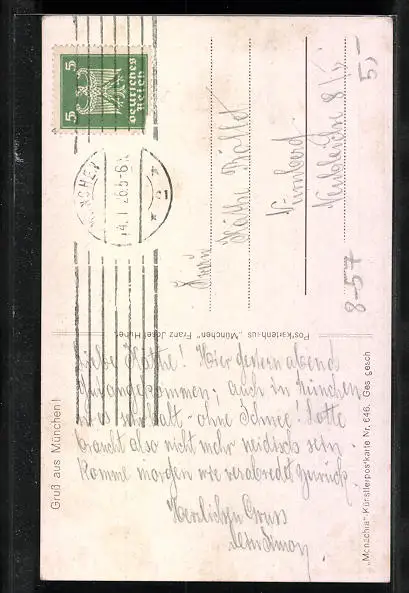 5
5
Deutsches
Reich
MÜNCHEN
14.1.26.5-6
* 21 *
Frau
Käthe
Nürnberg
5,-
8-57
Postkartenhaus „München" Franz Josef Huber,
Gruß aus München!
Liebe Käthe! Hier gestern abend
angekommen; auch in München
ist es sehr kalt - ohne Schnee! Lotte
braucht also nicht mehr neidisch sein.
Komme morgen wie verabredet zurück.
Herzlichen Gruss
„Monachia"-Künstlerpostkarte Nr. 646. Ges gesch